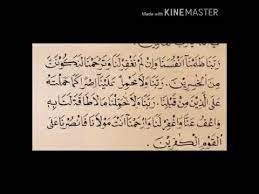 Made with KINEMASTER
رَبَّنَا ظَلَمْنَا أَنْفُسَنَا وَإِنْ لَمْ تَغْفِرْ لَنَا وَتَرْحَمْنَا لَنَكُونَنَّ
مِنَ الْخَسِرِينَ. رَبَّنَا وَلَا تَحْمِلْ عَلَيْنَا إِصْرًا كَمَا حَمَلْتَهُ
عَلَى الَّذِينَ مِنْ قَبْلِنَا. رَبَّنَا وَلَا تُحَمِّلْنَا مَا لَا طَاقَةَ لَنَا بِهِ
وَاعْفُ عَنَّا وَاغْفِرْ لَنَا وَارْحَمْنَا أَنْتَ مَوْلَانَا فَانْصُرْنَا عَلَى
الْقَوْمِ الْكَفِرِينَ.